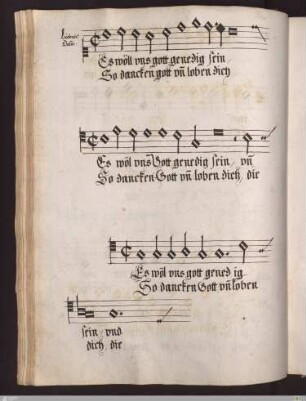 Es wöll vns gott genedig sein
So dancken gott vn̄ loben dich
Es wöl vns Gott genedig sein / vn̄
So dancken Gott vn̄ loben dich / die
Es wöl vns gott gened ig
So dancken Gott vn̄ loben
sein / vnd
dich / die